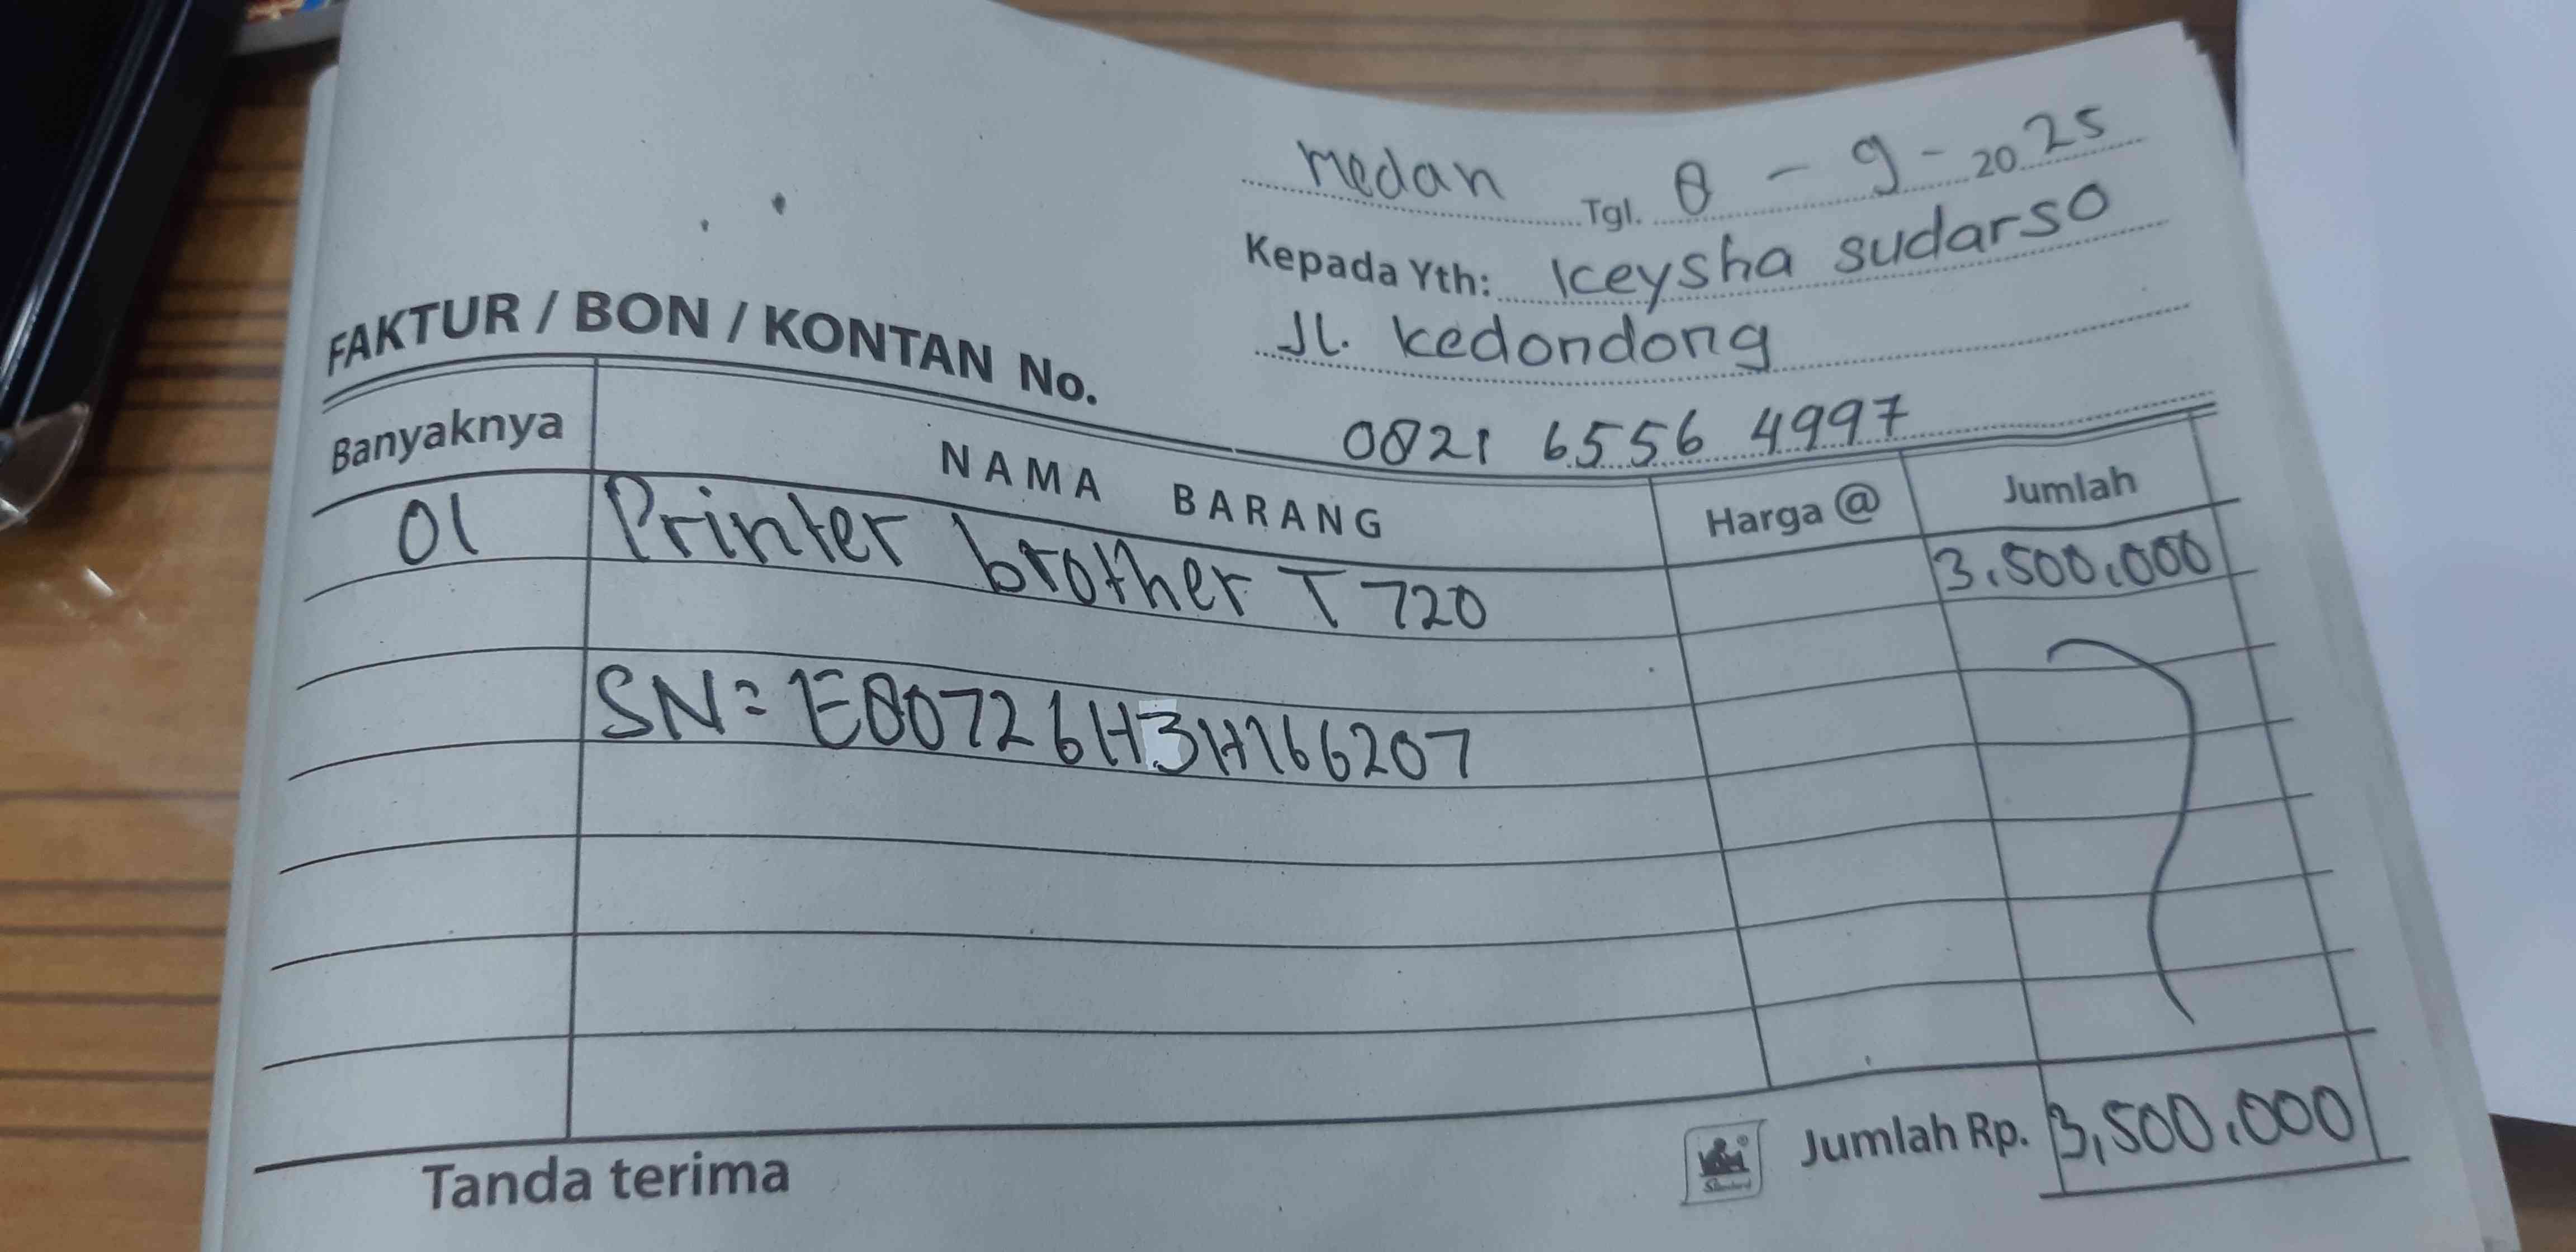 Medan Tgl. 8 - 9 - 2025
Kepada Yth: Keysha sudarso
Jl. kedondong
0821 6556 4997
FAKTUR / BON / KONTAN No.
Banyaknya NAMA BARANG Harga @ Jumlah
01 Printer brother T 720 3.500.000
SN= E80726H3H166207
Tanda terima Jumlah Rp. 3,500.000